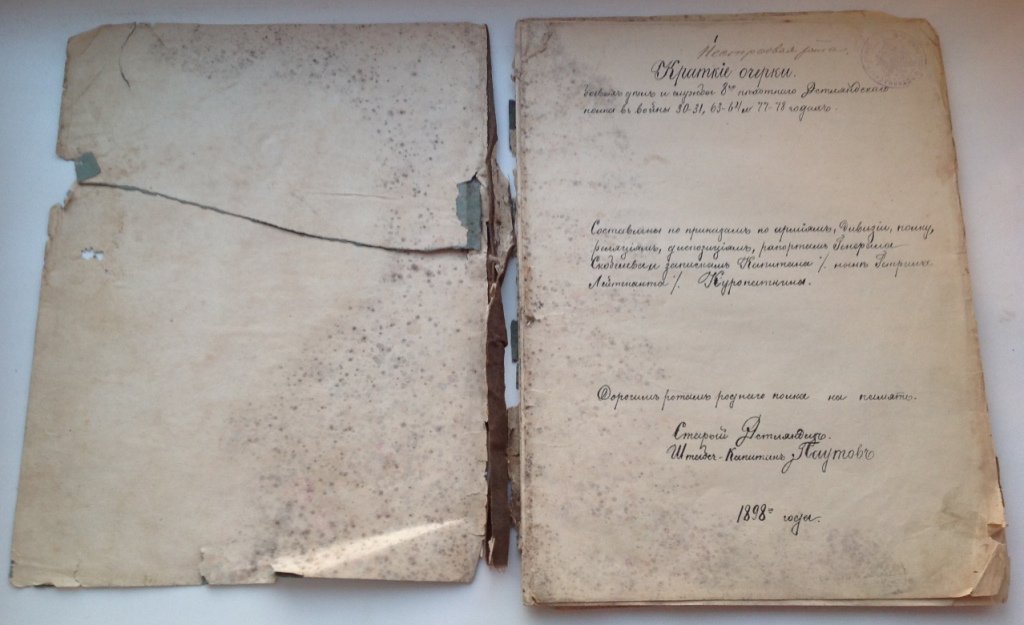 Нестроевая рота.
Краткіе очерки.
боевыхъ дѣлъ и службы 8го пѣхотнаго Эстляндскаго
полка въ войны 30-31, 63-64 и 77-78 годахъ.
Составлены по приказамъ по арміямъ, дивизіи, полку,
реляціямъ, диспозиціямъ, рапортамъ Генерала
Скобелева и запискамъ Капитана /. нынѣ Генералъ
Лейтенанта /. Куропаткина.
Дорогимъ ротамъ роднаго полка на память.
Старый Эстляндецъ.
Штабсъ-Капитанъ Паутовъ
1898го года.